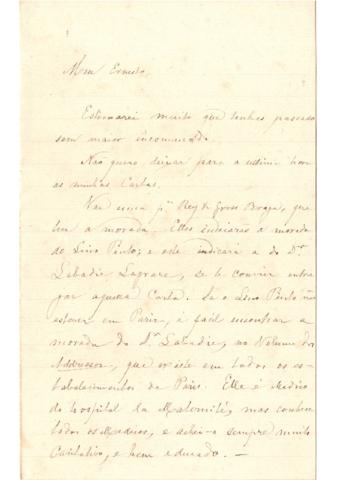 Meu Ernesto,
Estimarei muito que tenhas passado
sem maior incommodo.
Não quero deixar para a ultima hora
as minhas Cartas.
Vae uma pª Rey de Gross Braga, que
tem a morada. Elles indicarão a morada
do Lino Pinto; e este indicará a do Dr.
Labadie Lagrave, se te convir entre
gar aquella Carta. Se o Lino Pinto não
estiver em Paris, é facil encontrar a
morada do Dr. Labadie, no Volume dos
Addresses, que existe em todos os es-
tabelecimentos de Paris. Elle é Medico
do hospital la Maternité, mas conhece
todos os Medicos, e achei-o sempre muito
Caritativo, e bem educado. —